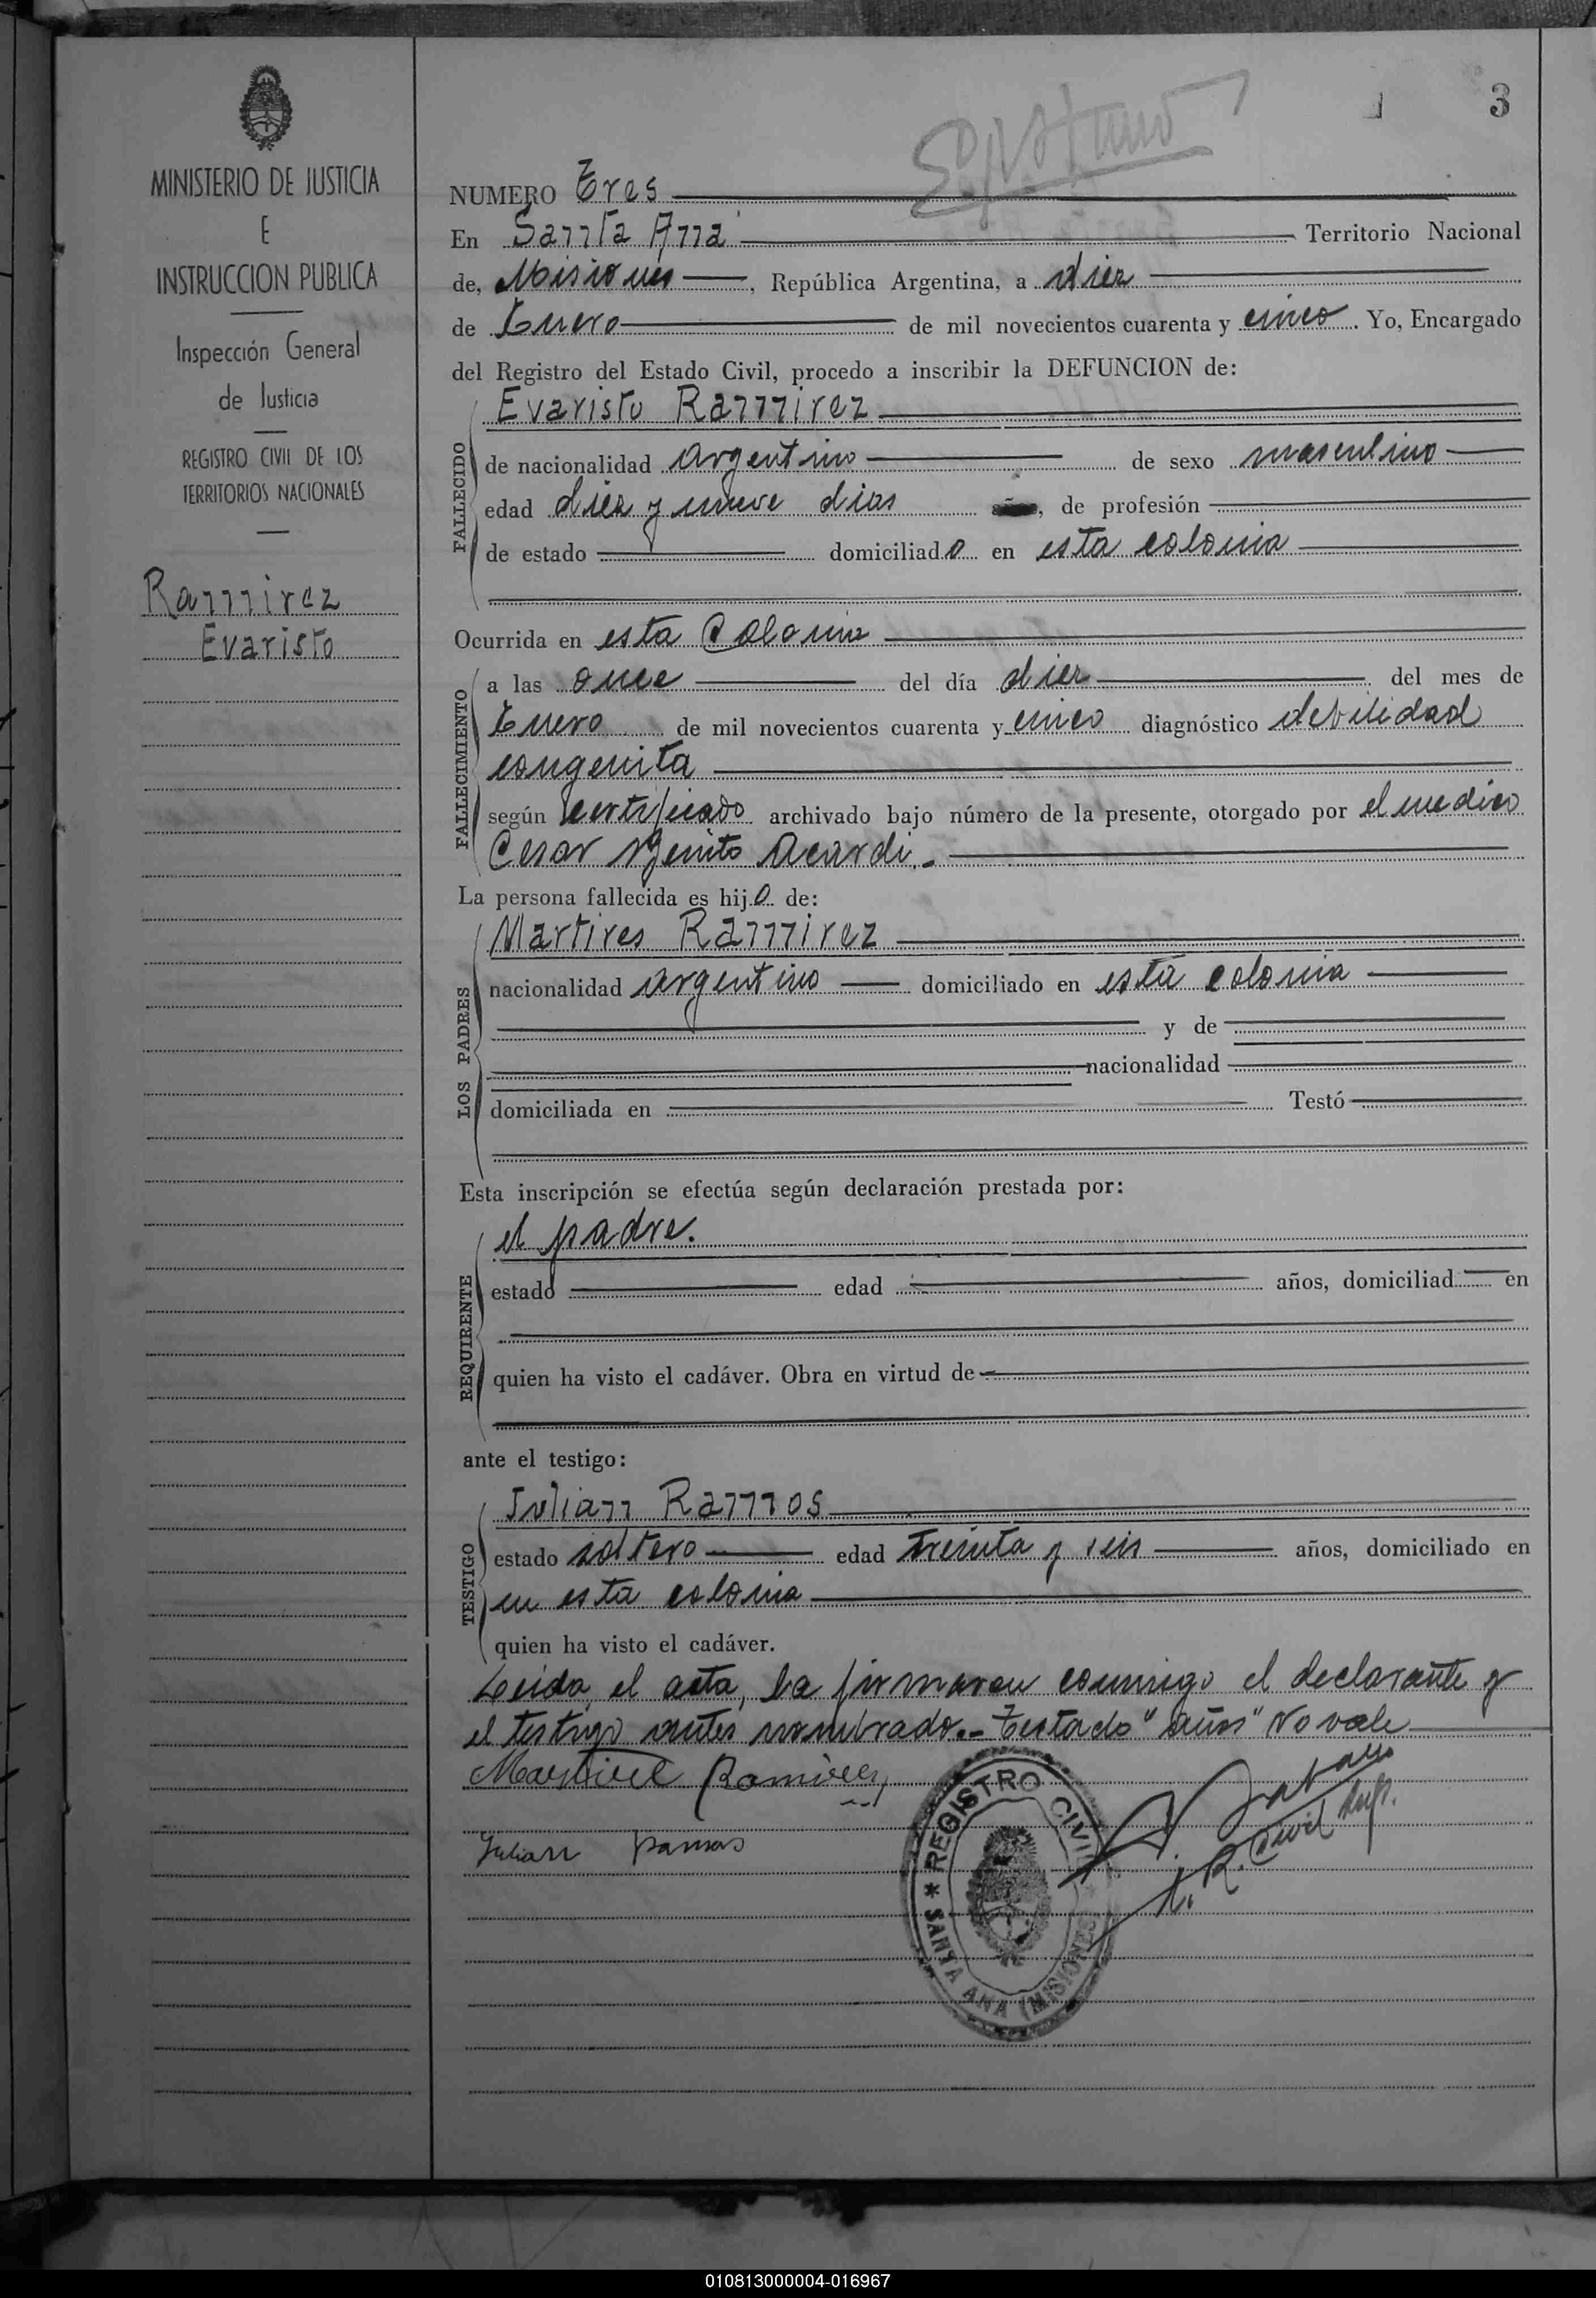 3
MINISTERIO DE JUSTICIA
E
INSTRUCCION PUBLICA
Inspección General
de Justicia
REGISTRO CIVIL DE LOS
TERRITORIOS NACIONALES
Ramirez
Evaristo
NUMERO Tres
En Santa Ana Territorio Nacional
de, Misiones, República Argentina, a diez
de Enero de mil novecientos cuarenta y cinco. Yo, Encargado
del Registro del Estado Civil, procedo a inscribir la DEFUNCION de:
FALLECIDO
Evaristo Ramirez
de nacionalidad argentino de sexo masculino
edad diez y nueve dias años, de profesión
de estado domiciliado en esta colonia
Ocurrida en esta Colonia
FALLECIMIENTO
a las once del día diez del mes de
Enero de mil novecientos cuarenta y cinco diagnóstico debilidad
congenita
según certificado archivado bajo número de la presente, otorgado por el medico
Cesar Benito Acardi.
La persona fallecida es hijo de:
LOS PADRES
Martires Ramirez
nacionalidad argentino domiciliado en esta colonia
y de
nacionalidad
domiciliada en Testó
Esta inscripción se efectúa según declaración prestada por:
REQUIRENTE
el padre.
estado edad años, domiciliad en
quien ha visto el cadáver. Obra en virtud de
ante el testigo:
TESTIGO
Julian Ramos
estado soltero edad treinta y seis años, domiciliado en
en esta colonia
quien ha visto el cadáver.
Leida el acta, la firmaron conmigo el declarante y
el testigo antes nombrado.- Testado "años" No vale
Martires Ramirez
Julian Ramos
REGISTRO CIVIL
SANTA ANA (MISIONES)
R. Civil Sup.
010813000004-016967